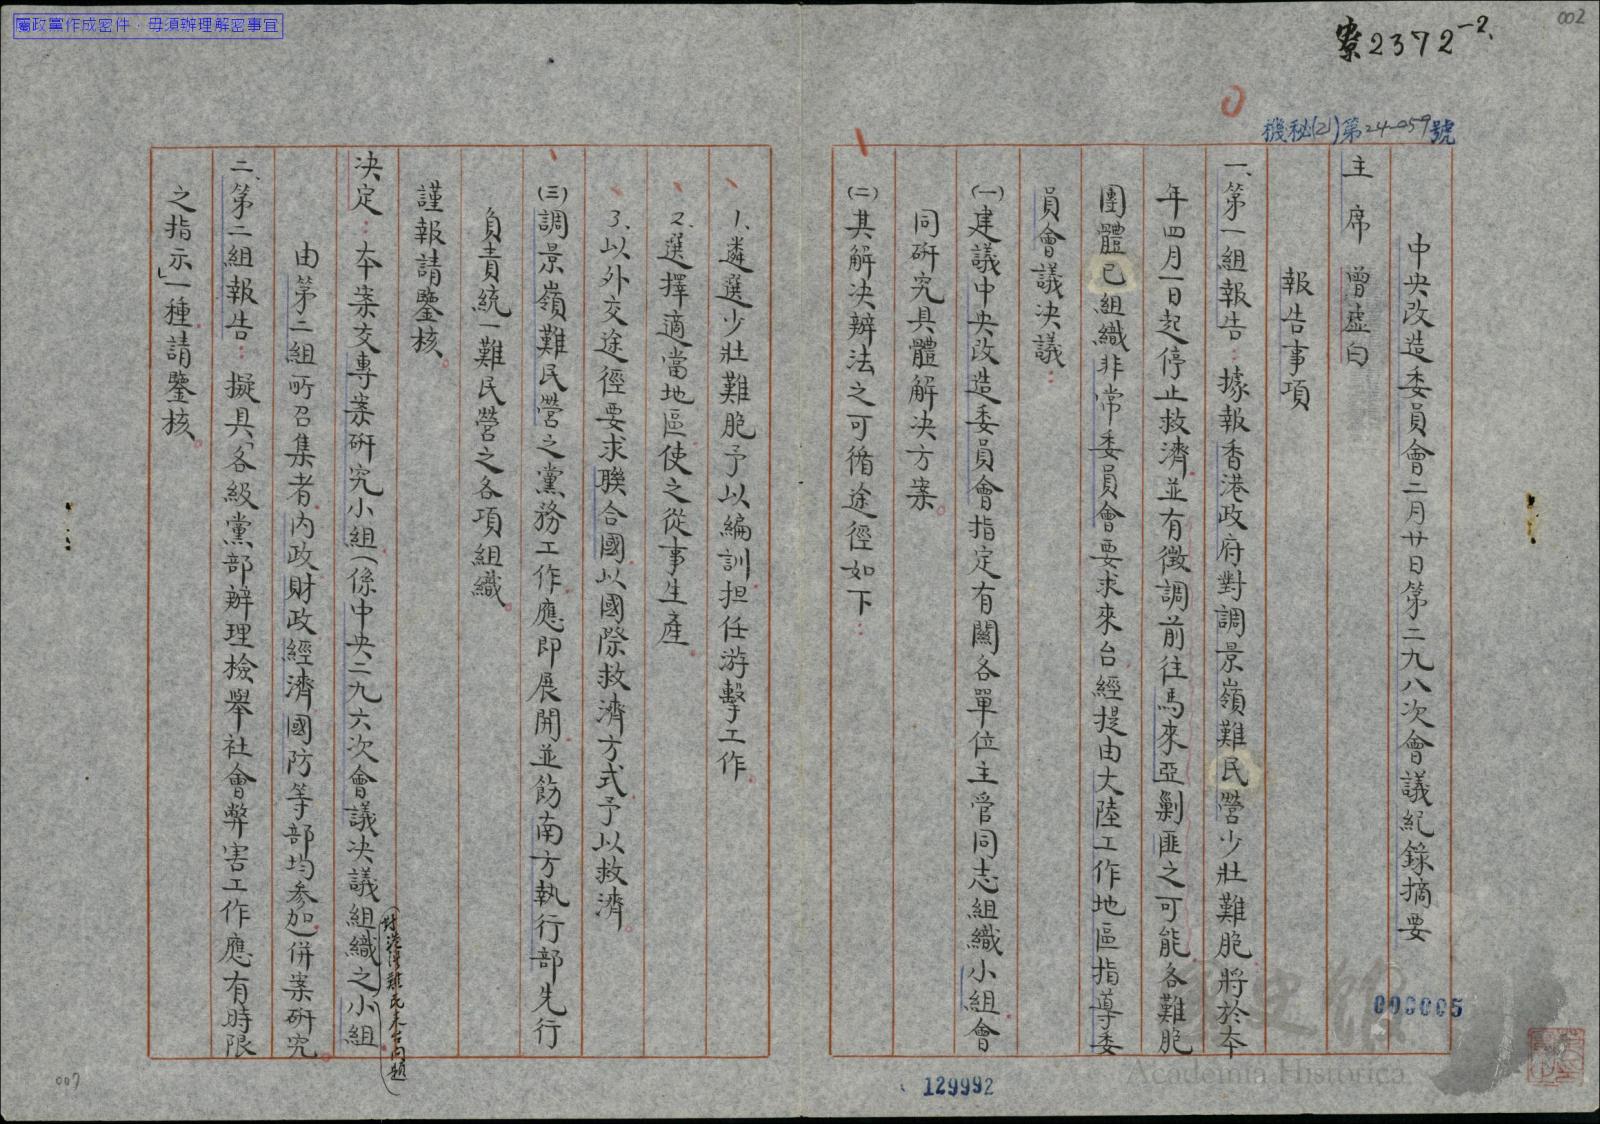 屬政黨作成密件，毋須辦理解密事宜
002
寮2372-2.
機秘(21)第24-059號
中央改造委員會二月廿日第二九八次會議紀錄摘要
主席 曾虛白
報告事項
一、第一組報告：據報香港政府對調景嶺難民營少壯難胞將於本
年四月一日起停止救濟並有徵調前往馬來亞剿匪之可能各難胞
團體已組織非常委員會要求來台經提由大陸工作地區指導委
員會議決議：
(一)建議中央改造委員會指定有關各單位主管同志組織小組會
同研究具體解決方案。
(二)其解決辦法之可循途徑如下：
1、遴選少壯難胞予以編訓担任游擊工作。
2、選擇適當地區使之從事生產
3、以外交途徑要求聯合國以國際救濟方式予以救濟。
(三)調景嶺難民營之黨務工作應即展開並飭南方執行部先行
負責統一難民營之各項組織。
謹報請鑒核。
決定：本案交專案研究小組（係中央二九六次會議決議組織之小組
（討論港澳難民來台問題）
由第二組所召集者，內政財政經濟國防等部均參加）併案研究。
二、第二組報告：擬具「各級黨部辦理檢舉社會弊害工作應有時限
之指示」一種請鑒核。
000005
國史館
Academia Historica
129992
007